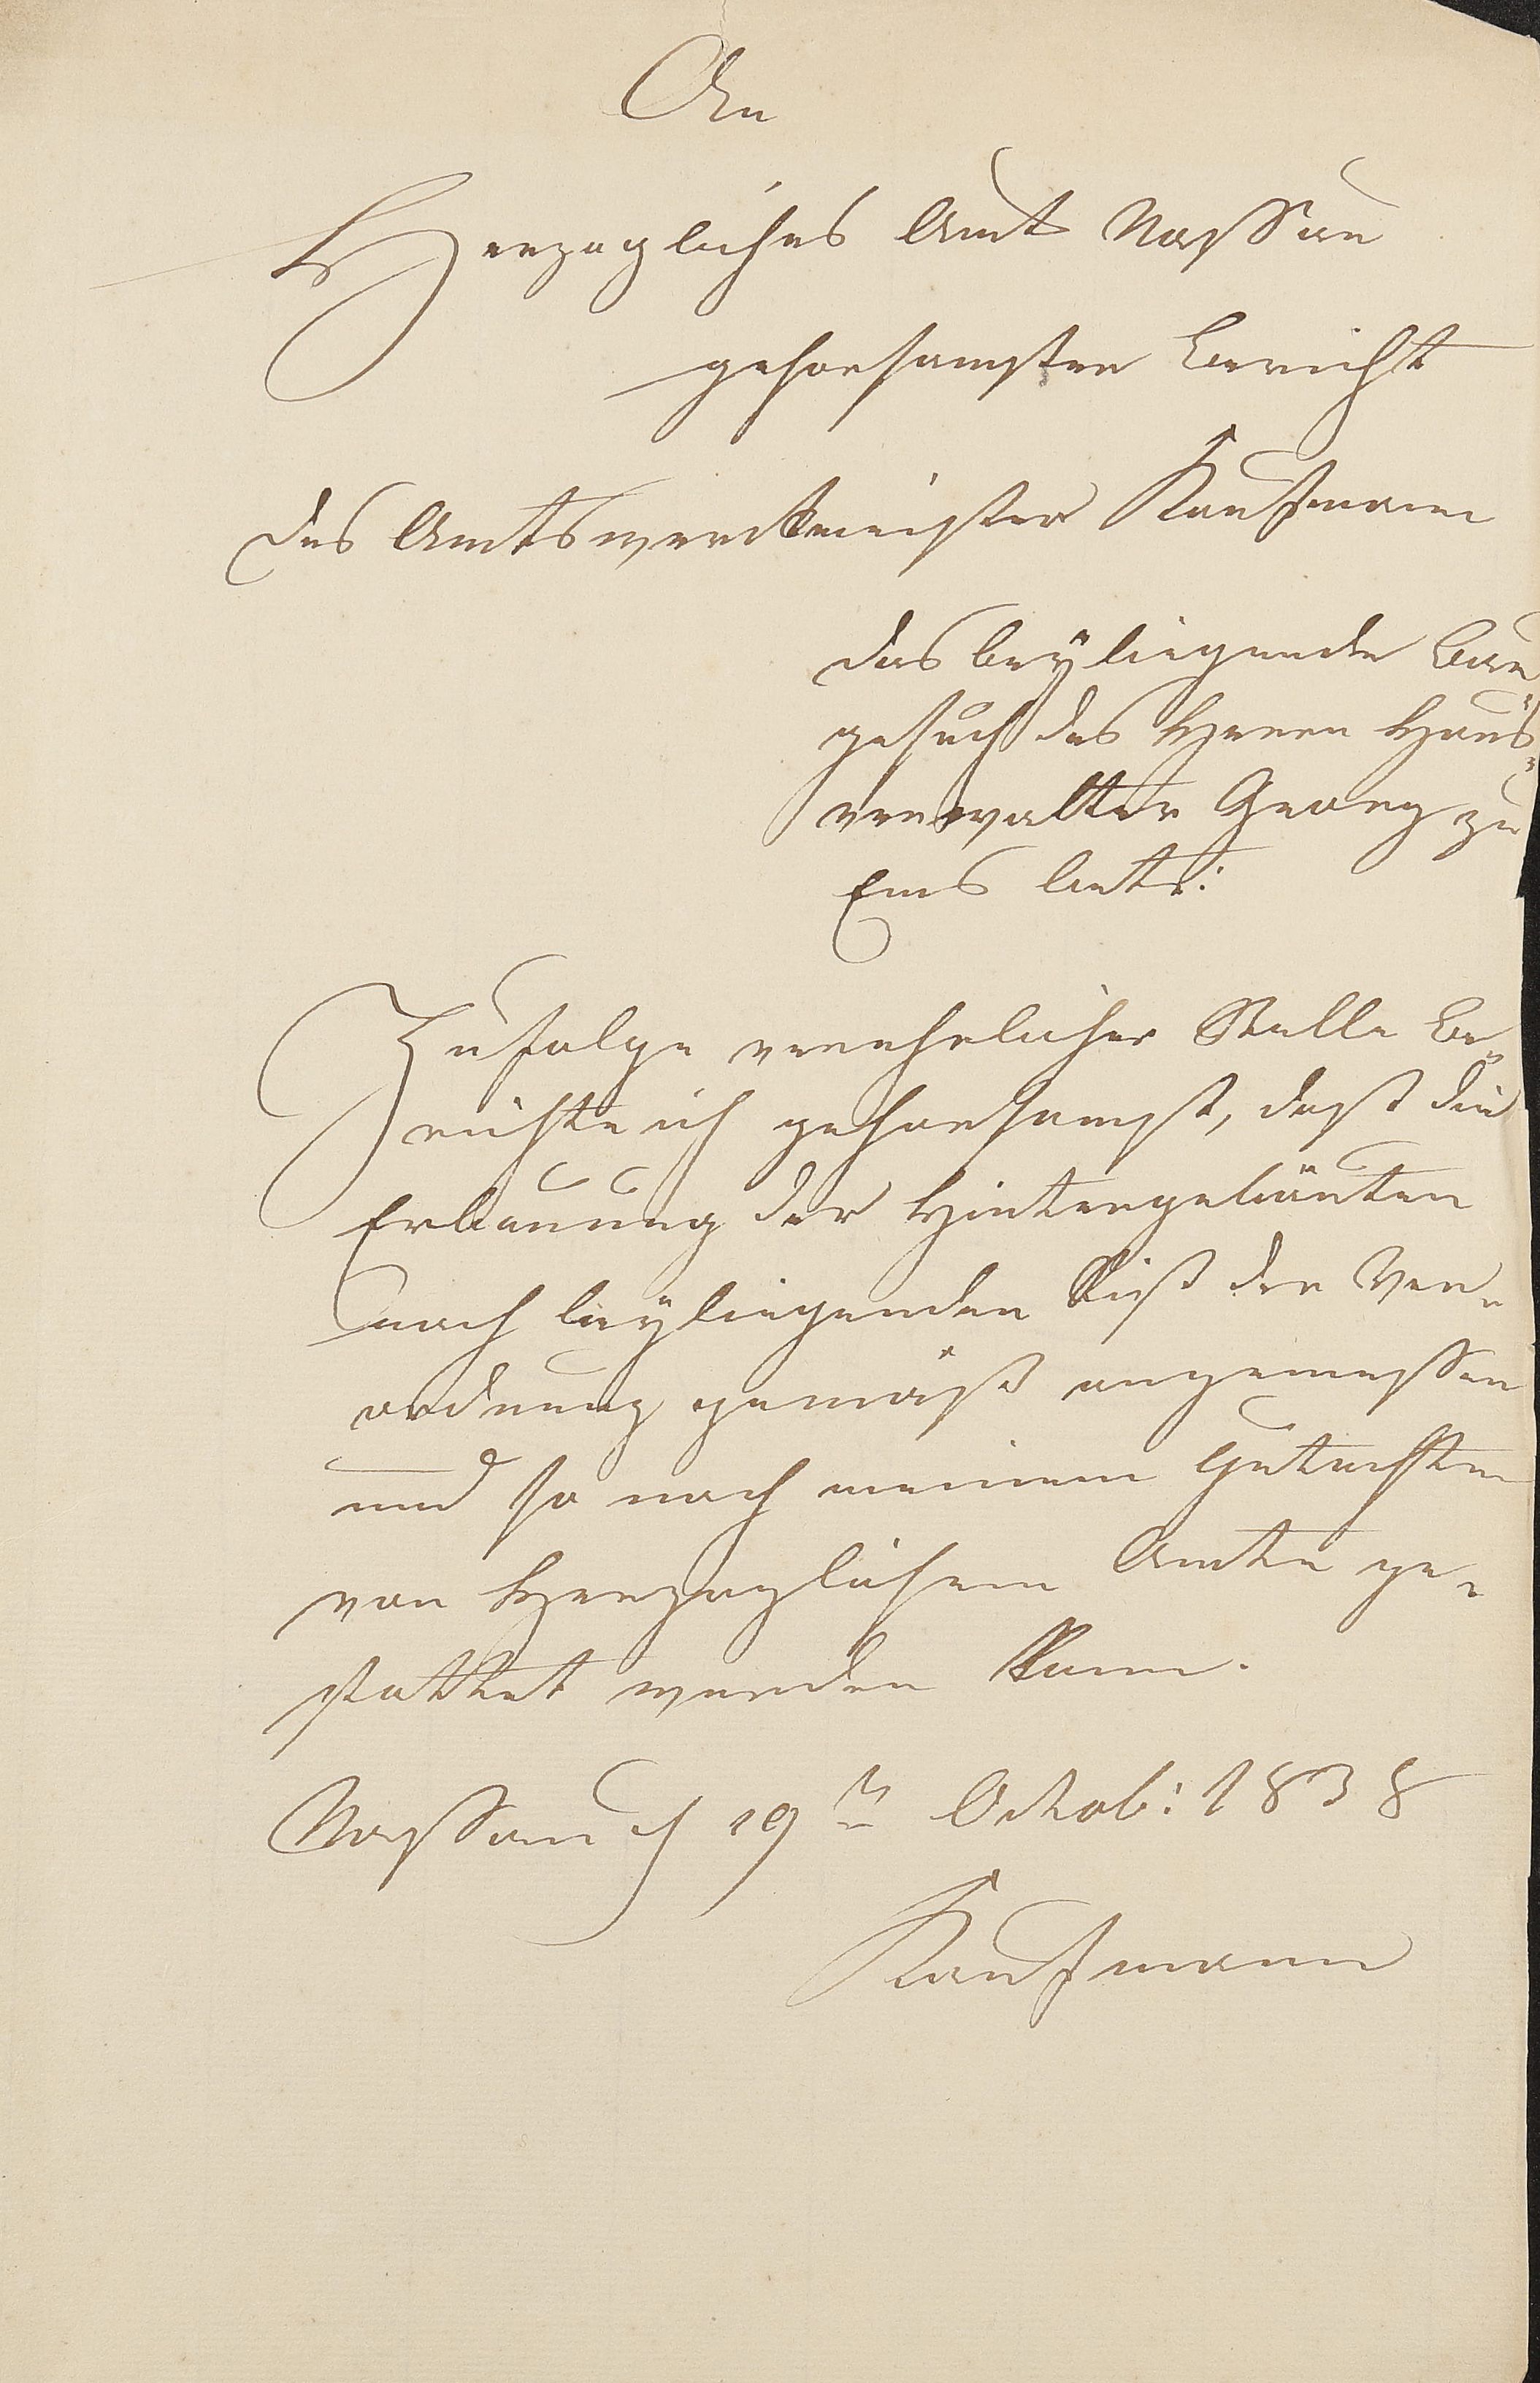 An
Herzogliches Amt Nassau
gehorsamster Bericht
des Amtswerckmeister Kaufmann
das beÿliegende Bau
gesuch des Herrn Haus„
verwalter Georg zu
Ems betr:
Zufolge verehrlicher Stelle be„
richte ich gehorsamst, daß die
Erbauung der Hintergebäuten
nach beÿliegenden Riß der Ver„
ordnung gemäß angemessen
und so nach meinem Gutachten
von Herzoglichem Amte ge„
stattet werden kann.
Nassau d 19ten Octob: 1838
Kaufmann